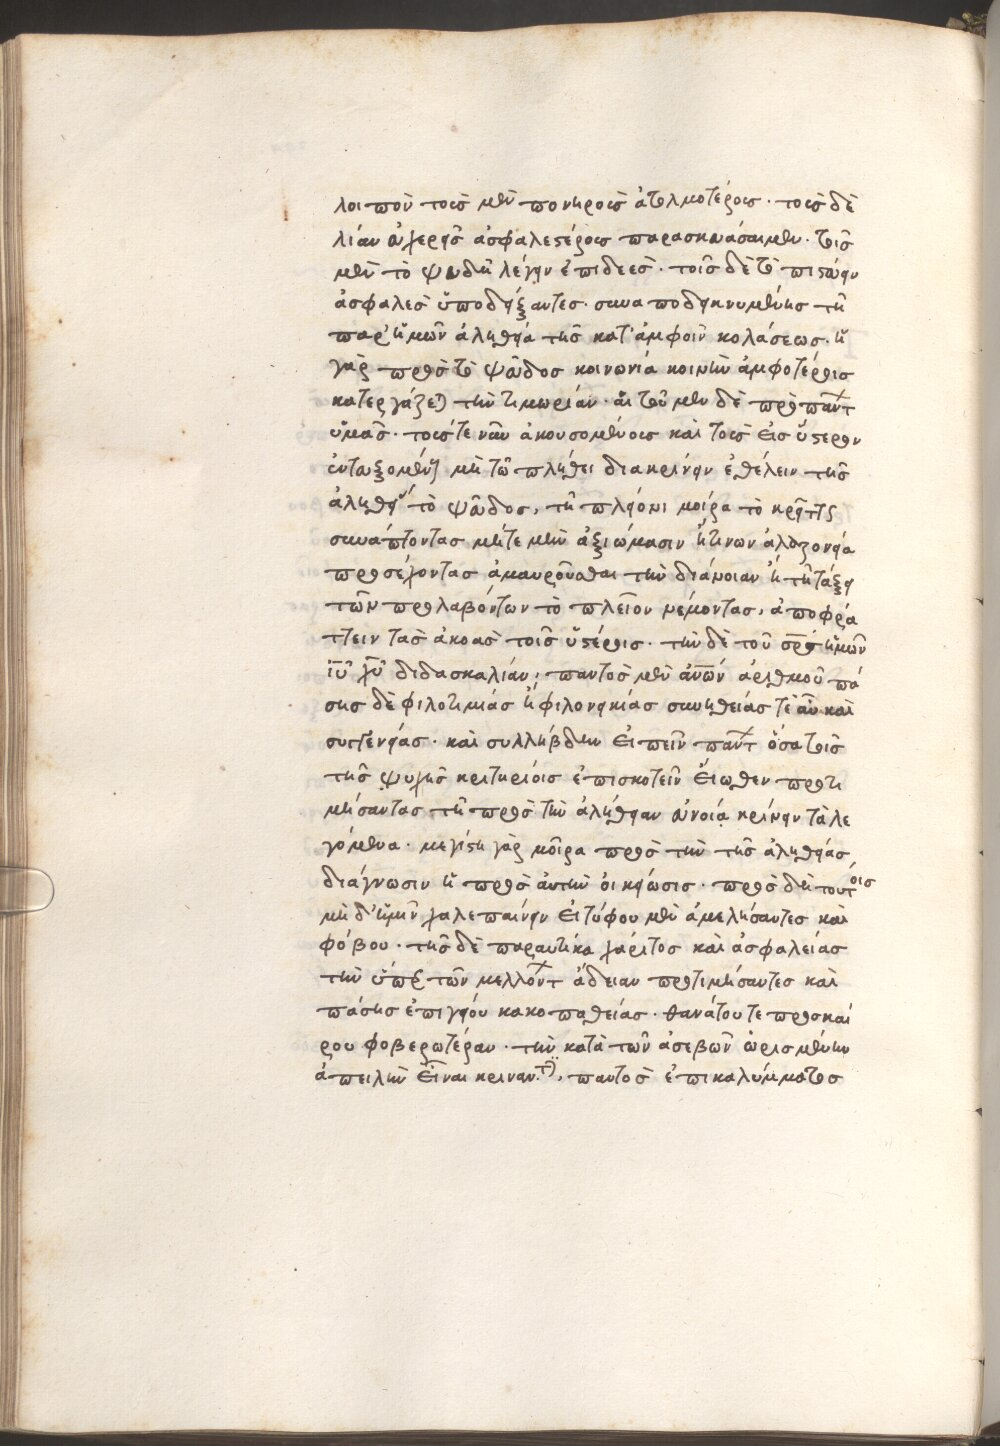 λοιπὸν τοῖς μὲν πονηροῖς ἀτολμοτέροις· τοῖς δὲ
λίαν εὐχερέσ ἀσφαλεστέροις παρασκευάσαιμεν· τοῖς
μὲν τὸ ψευδῆ λέγειν ἐπιδεὲς· τοῖς δὲ τὸ πιστεύειν
ἀσφαλὲς ὑποδείξαντες· συναποδεικνυμένης τῆ
παρ' ἡμῶν ἀληθεία τῆς κατ' ἀμφοῖν κολάσεως· ἡ
γὰρ πρὸς τὸ ψεῦδος κοινωνία κοινὴν ἀμφοτέροις
κατεργάζεται τὴν τιμωρίαν· αἰτοῦμεν δὲ πρὸ πάντων
ὑμᾶς· τούς τε νῦν ἀκουσομένοις καὶ τοῖς εἰς ὕστερον
ἐντευξομένοις μὴ τῶ πλήθει διακρίνειν ἐθέλειν τῆς
ἀληθείας τὸ ψεῦδος, τῆ πλείονι μοίρα τὸ κρεῖττον
συνάπτοντας μήτε μὴν ἀξιώμασιν ἤ τινων ἀλαζονεία
προσέχοντας ἀμαυροῦσθαι τὴν διάνοιαν ἢ τῆ τάξει
τῶν προλαβόντων τὸ πλεῖον νέμοντας, ἀποφρά
ττειν τὰς ἀκοὰς τοῖς ὑστέροις· τὴν δὲ τοῦ σρς ἡμῶν
ἰυ χυ διδασκαλίαν, παντὸς μὲν ἀνων ἀριθμοῦ πά
σης δὲ φιλοτιμίας ἢ φιλονεικίας συνηθείας τὲ αὖ καὶ
συγγενείας· καὶ συλλήβδην εἰπεῖν πάντων ὅσα τοῖς
τῆς ψυχῆς κριτηρίοις ἐπισκοτεῖν εἴωθεν προτι
μήσαντας τῆ πρὸς τὴν ἀλήθειαν εὐνοία κρίνειν τὰ λε
γόμενα· μεγίστη γὰρ μοῖρα πρὸς τὴν τῆς ἀληθείας
διάγνωσιν ἡ πρὸς αὐτὴν οἰκείωσις· πρὸς δὴ τούτοις
μὴ δ' ἡμῖν χαλεπαίνειν εἰ τύφου μὲν ἀμελήσαντες καὶ
φόβου· τῆς δὲ παραυτίκα χάριτος καὶ ἀσφαλείας
τὴν ὑπὲρ τῶν μελλόντων ἄδειαν προτιμήσαντες καὶ
πάσης ἐπιγείου κακοπαθείας· θανάτου τε προσκαί
ρου φοβερωτέραν· τὴν κατὰ τῶν ἀσεβῶν ὡρισμένην
ἀπειλὴν εἶναι κρίναντες, παντὸς ἐπικαλύμματος